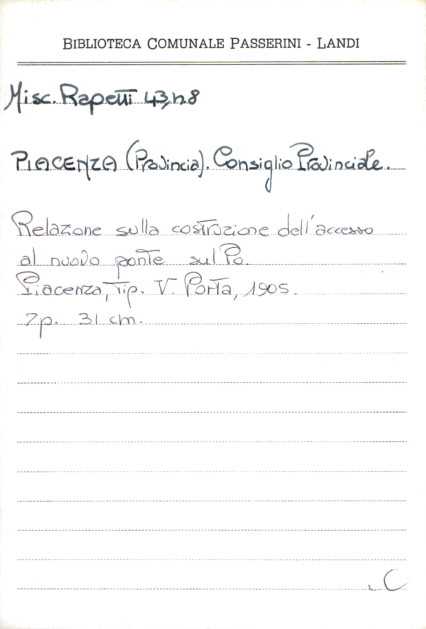 BIBLIOTECA COMUNALE PASSERINI - LANDI
Misc. Rapetti 43, n. 8
PIACENZA (Provincia). Consiglio Provinciale.
Relazione sulla costruzione dell'accesso
al nuovo ponte sul Po.
Piacenza, Tip. V. Porta, 1905.
7p. 31 cm.
C